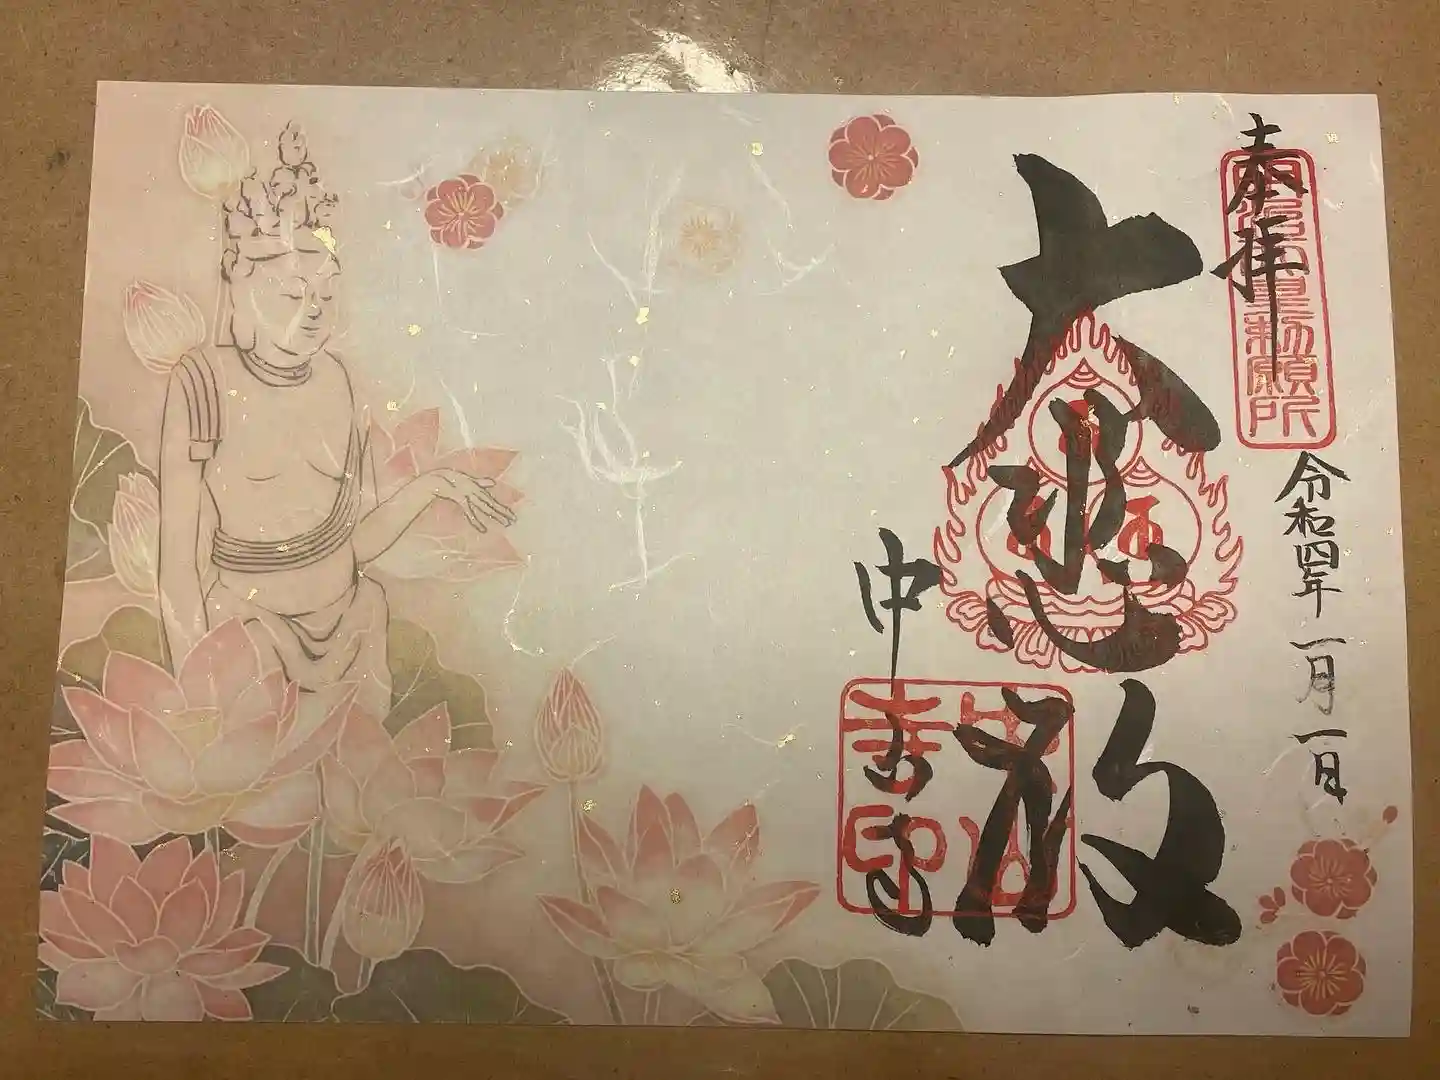 奉拝
勅願所
令和四年一月一日
大悲殿
中山寺
中山
寺印